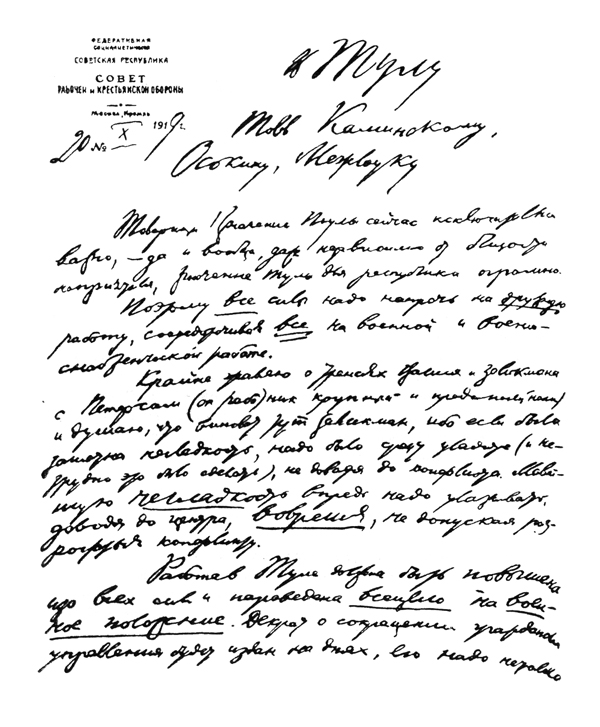 ФЕДЕРАТИВНАЯ
СОЦИАЛИСТИЧЕСКАЯ
СОВЕТСКАЯ РЕСПУБЛИКА
СОВЕТ
РАБОЧЕЙ и КРЕСТЬЯНСКОЙ ОБОРОНЫ
Москва, Кремль
20 X 1919 г.
№
в Тулу
Товв Каминскому,
Осокину, Межлауку
Товарищи! Значение Тулы сейчас исключительно
важно, — да и вообще, даже независимо от близости
неприятеля, значение Тулы для республики огромно.
Поэтому все силы надо напрячь на дружную
работу, сосредоточивая все на военной и военно-
снабженческой работе.
Крайне жалею о трениях Вашем и Зеликмана
с Петерсом (он работник крупный и преданнейший)
и думаю, что виноват тут Зеликман, ибо если была
замечена негладкость, надо было сразу уладить (и не-
трудно это было сделать), не доводя до конфликта. Малей-
шую негладкость впредь надо улаживать,
доводя до центра, вовремя, не допуская раз-
растись конфликту.
Работа в Туле должна быть повышена
изо всех сил и переведена всецело на воен-
ное положение. Декрет о сокращении гражданских
управления будет издан на днях, его надо не только